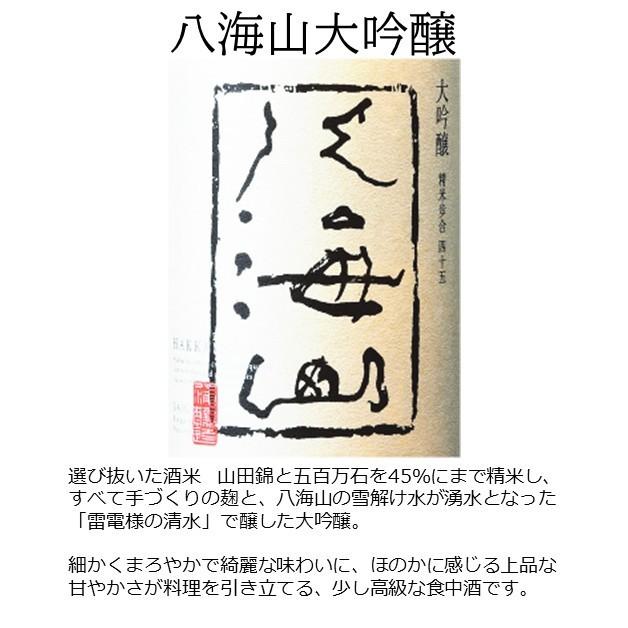 八海山大吟醸
八海山
大吟醸 精米歩合 四十五
選び抜いた酒米　山田錦と五百万石を45%にまで精米し、
すべて手づくりの麹と、八海山の雪解け水が湧水となった
「雷電様の清水」で醸した大吟醸。
細かくまろやかで綺麗な味わいに、ほのかに感じる上品な
甘やかさが料理を引き立てる、少し高級な食中酒です。